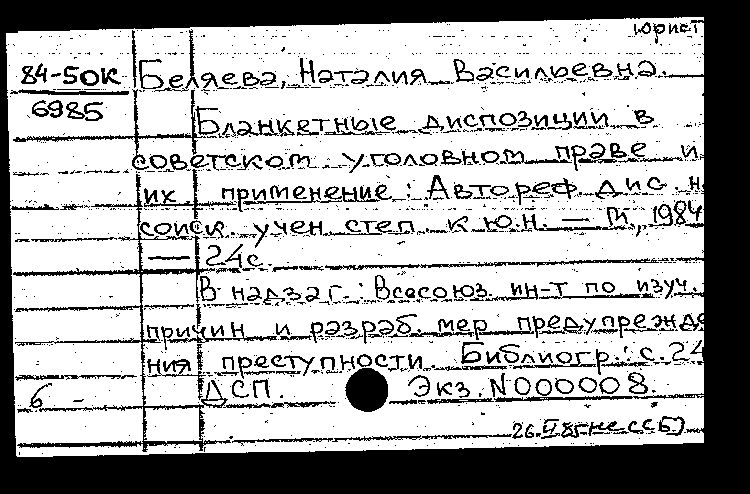 юрист
84-5ОК Беляева, Наталия Васильевна.
6985
Бланкетные диспозиции в
советском уголовном праве и
их применение: Автореф дис н
соиск. учен степ. к ю.н. — М, 1984
— 24с.
В надзаг: Всесоюз ин-т по изуч.
причин и разраб. мер предупрежде
ния преступности Библиогр.: с.24
6 - ДСП. Экз. N000008.